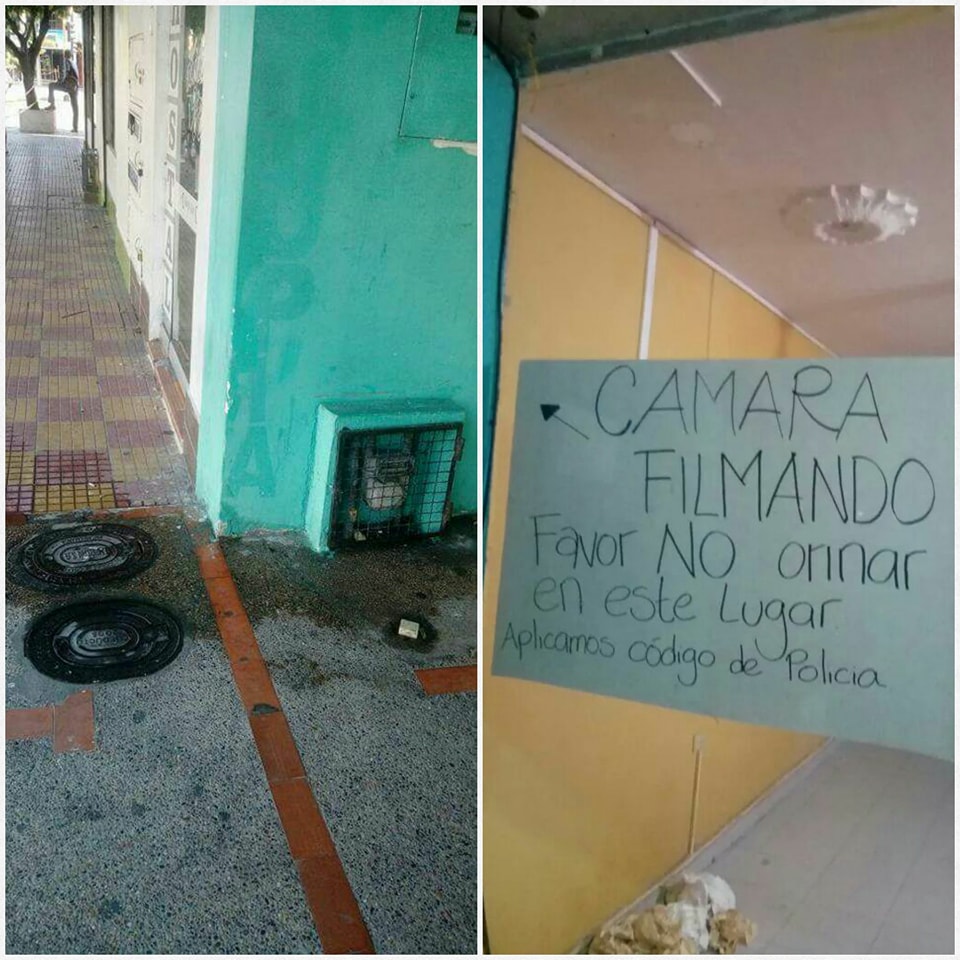 HOSTAL
CAMARA
FILMANDO
Favor NO orinar
en este Lugar.
Aplicamos código de Policia